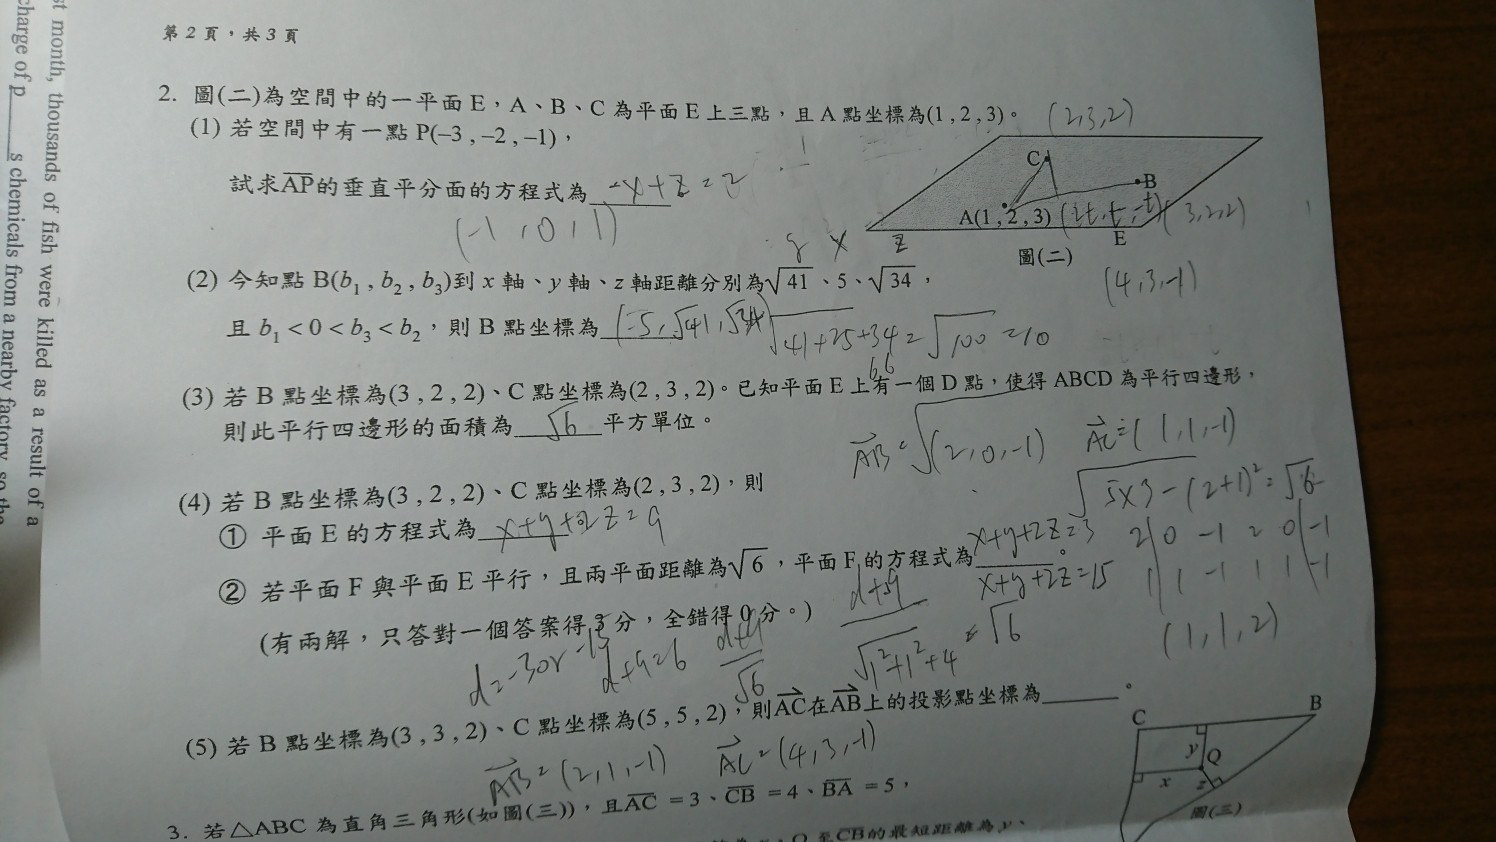 第2頁,共3頁
st month, thousands of fish were killed as a result of a
charge of p______s chemicals from a nearby factory, so the
2. 圖(二)為空間中的一平面E,A、B、C為平面E上三點,且A點坐標為(1 , 2 , 3)。 (2,3,2)
(1) 若空間中有一點P(–3 , –2 , –1),
試求AP的垂直平分面的方程式為 -x+z=2
(-1,0,1)
C
B
A(1 , 2 , 3) (2t, t, -t) (3,2,2)
E
圖(二)
y x z
(4,3,-1)
(2) 今知點B(b₁ , b₂ , b₃)到x軸、y軸、z軸距離分別為√41、5、√34,
且b₁ < 0 < b₃ < b₂,則B點坐標為 (-5,√41,√34) √41+25+34=√100=10
6,6
(3) 若B點坐標為(3 , 2 , 2)、C點坐標為(2 , 3 , 2)。已知平面E上有一個D點,使得ABCD為平行四邊形,
則此平行四邊形的面積為 √6 平方單位。
AB=(2,0,-1) AC=(1,1,-1)
√5×3-(2+1)²=√6
(4) 若B點坐標為(3 , 2 , 2)、C點坐標為(2 , 3 , 2),則
① 平面E的方程式為 x+y+2z=9
2 0 -1 2 0 -1
1 1 -1 1 1 -1
(1,1,2)
② 若平面F與平面E平行,且兩平面距離為√6,平面F的方程式為 x+y+2z=3
x+y+2z=15
(有兩解,只答對一個答案得3分,全錯得0分。)
d+9
√1²+1²+4 = √6
d=-3or-15 d+9=6 d+9
√6
(5) 若B點坐標為(3 , 3 , 2)、C點坐標為(5 , 5 , 2),則AC在AB上的投影點坐標為______。
AB=(2,1,-1) AC=(4,3,-1)
3. 若△ABC為直角三角形(如圖(三)),且AC =3、CB =4、BA =5,
Q至CB的最短距離為y、
C
B
y
Q
x
z
圖(三)